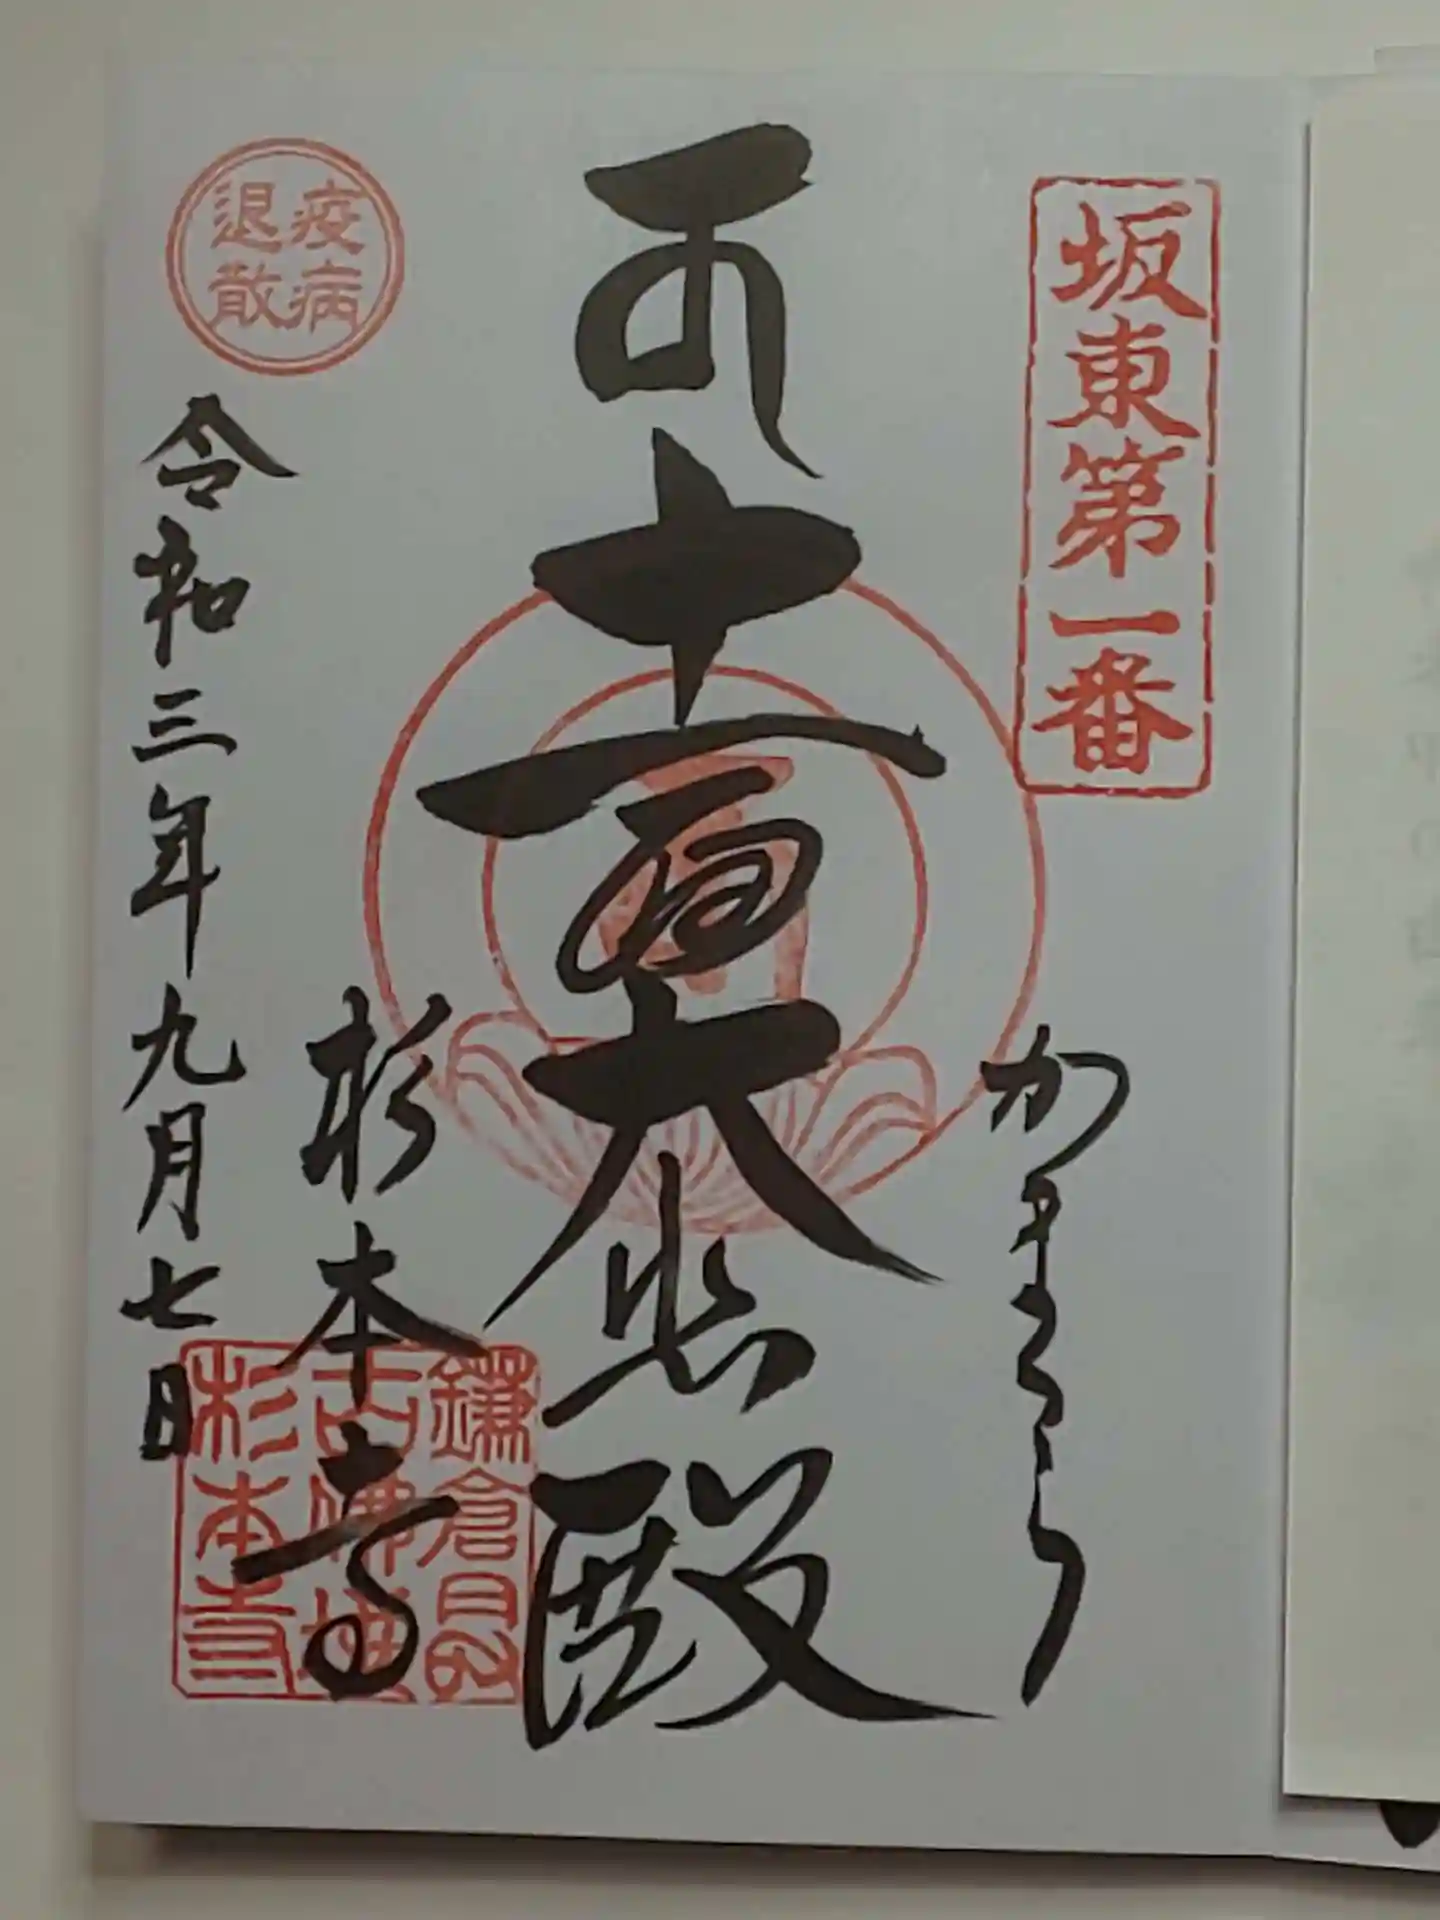 坂東第一番
かまくら
十一面大悲殿
杉本寺
令和三年九月七日
疫病
退散
鎌倉最
古佛地
杉本寺